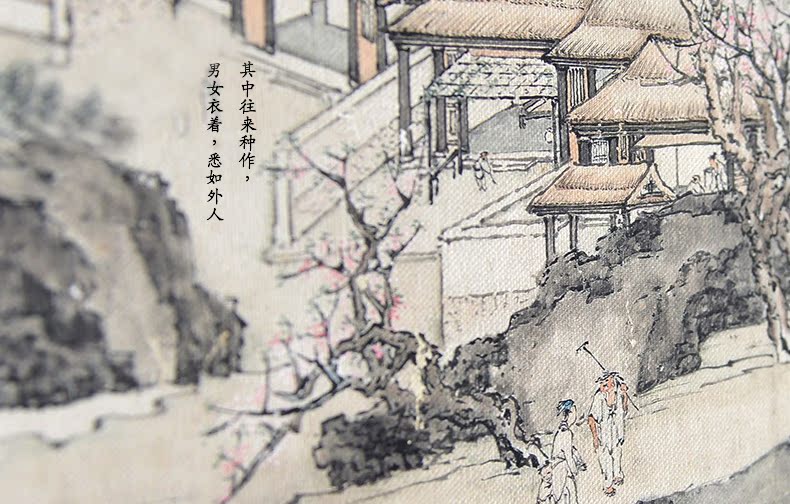 其中往来种作，
男女衣着，悉如外人